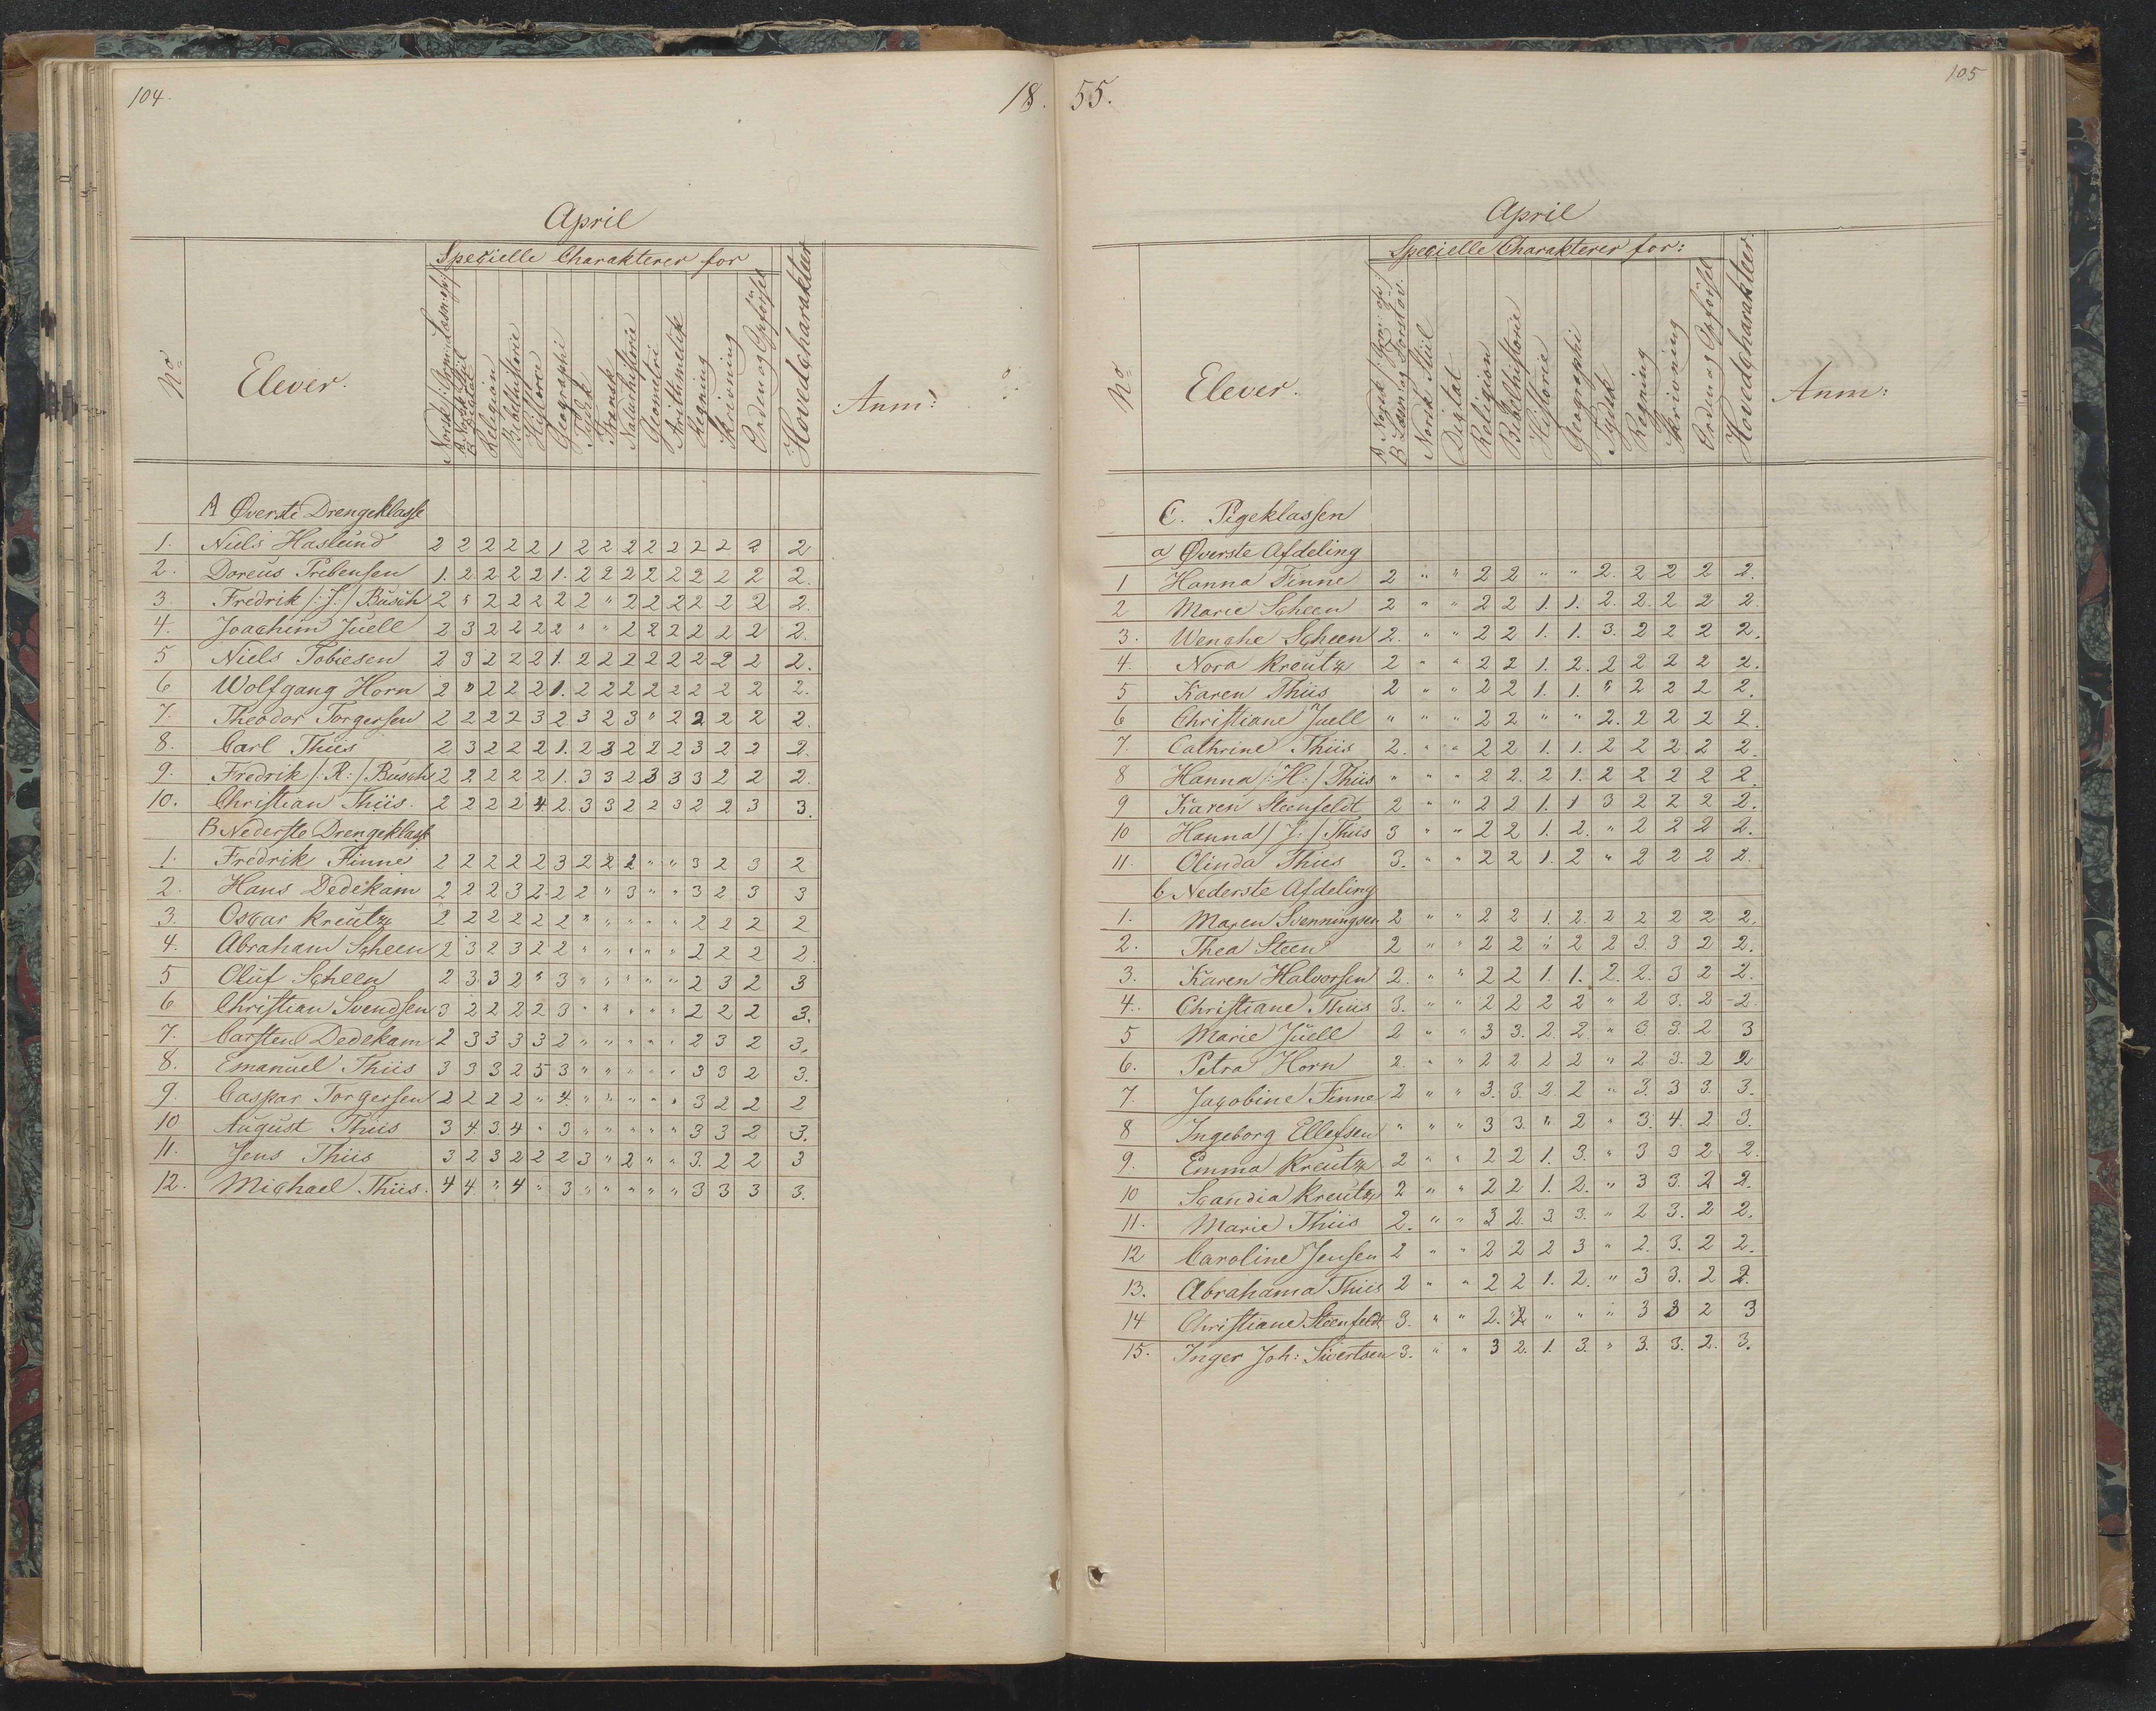 104.
18.
April
Specielle Charakterer for
No
Elever.
Norsk
Religion
Bibelhistorie
Historie
Geographi
Tydsk
Fransk
Naturhistorie
Geometri
Arithmetik
Regning
Skrivning
Orden og Opförsel
Hovedcharakteer
Anm:
A Øverste Drengeklasse
1. Niels Haslund 2 2 2 2 2 1 2 2 2 2 2 2 2 2 2
2. Doreus Prebensen 1. 2 2 2 2 1. 2 2 2 2 2 2 2 2 2.
3. Fredrik /:J:/ Busch 2 " 2 2 2 2 2 " 2 2 2 2 2 2 2.
4. Joachim Juell 2 3 2 2 2 2 " " 2 2 2 2 2 2 2.
5 Niels Tobiesen 2 3 2 2 2 1. 2 2 2 2 2 2 2 2 2.
6 Wolfgang Horn 2 " 2 2 2 1. 2 2 2 2 2 2 2 2 2.
7. Theodor Torgersen 2 2 2 2 3 2 3 2 3 " 2 2 2 2 2.
8. Carl Thiis 2 3 2 2 2 1. 2 3 2 2 2 3 2 2 2.
9. Fredrik /:R:/ Busch 2 2 2 2 2 1. 3 3 2 3 3 3 2 2 2.
10. Christian Thiis. 2 2 2 2 4 2. 3 3 2 2 3 2 2 3 3.
B Nederste Drengeklasse
1. Fredrik Finne 2 2 2 2 2 3 2 2 2 " " 3 2 3 2
2. Hans Dedekam 2 2 2 3 2. 2 2 " 3 " " 3 2 3 3
3. Oscar Kreutz 2 2 2 2 2 2 2 " " " " 2 2 2 2
4. Abraham Scheen 2 3 2 3 2 2 " " " " " 2 2 2 2.
5 Oluf Scheen 2 3 3 2 " 3 " " " " " 2 3 2 3
6 Christian Svendsen 3 2 2 2 2 3 " " " " " 2 2 2 3.
7. Carsten Dedekam 2 3 3 3 3 2 " " " " " 2 3 2 3.
8. Emanuel Thiis 3 3 3 2 5 3 " " " " " 3 3 2 3.
9. Caspar Torgersen 2 2 2 2 " 4. " " " " " 3 2 2 2
10 August Thiis 3 4. 3. 4 " 3 " " " " " 3 3 2 3.
11. Jens Thiis 3 2 3 2 2 2 3 " 2 " " 3. 2 2 3
12. Michael Thiis. 4 4 " 4 " 3 " " " " " 3 3 3 3.
55.
105
April
Specielle Charakterer for:
No
Elever.
Norsk Stiil
Dictat
Religion
Bibelhistorie
Historie
Geographi
Tydsk
Regning
Skrivning
Orden og Opförsel
Hovedcharakteer
Anm:
C. Pigeklassen
a Øverste Afdeling
1 Hanna Finne 2 " " 2 2 " " 2. 2 2 2 2.
2 Marie Scheen 2 " " 2 2 1. 1. 2. 2. 2 2 2.
3. Wenche Scheen 2. " " 2 2 1. 1. 3. 2 2 2 2.
4. Nora Kreutz 2 " " 2 2 1. 2. 2 2 2 2 2.
5 Karen Thiis 2 " " 2 2 1. 1. " 2 2 2 2.
6 Christiane Juell " " " 2 2 " " 2. 2 2 2 2.
7. Cathrine Thiis 2. " " 2 2 1. 1. 2 2 2 2 2.
8 Hanna /:H:/ Thiis " " " 2 2. 2 1. 2 2 2 2 2.
9 Karen Steenfeldt 2 " " 2 2 1. 1 3 2 2 2 2.
10 Hanna /:J:/ Thiis 3 " " 2 2 1. 2. " 2 2 2 2.
11. Olinda Thiis 3. " " 2 2 1. 2 " 2 2 2 2.
b Nederste Afdeling
1. Maren Svenningsen 2 " " 2 2 1. 2. 2 2 2 2 2.
2. Thea Steen 2 " " 2 2 " 2 2 3. 3 2 2.
3. Karen Halvorsen 2. " " 2 2 1. 1. 2. 2. 3 2 2.
4. Christiane Thiis 3. " " 2 2 2 2 " 2 3. 2 2.
5 Marie Juell 2 " " 3 3. 2. 2. " 3. 3. 2 3
6. Petra Horn 2. " " 2 2 2 2 " 2 3. 2 2
7. Jacobine Finne 2 " " 3. 3. 2. 2 " 3. 3 3. 3.
8 Ingeborg Ellefsen " " " 3 3. " 2 " 3. 4. 2 3.
9. Emma Kreutz 2 " " 2 2 1. 3. " 3 3 2 2.
10 Scandia Kreutz 2 " " 2 2 1. 2. " 3 3. 2 2.
11. Marie Thiis 2. " " 3 2. 3. 3. " 2 3. 2 2.
12 Caroline Jensen 2 " " 2 2 2 3 " 2. 3. 2 2.
13. Abrahama Thiis 2 " " 2 2 1. 2. " 3 3. 2 2.
14 Christiane Steenfeldt 3. " " 2. 2 " " " 3 3 2 3
15. Inger Joh: Sivertsen 3. " " 3 2. 1. 3. " 3. 3. 2. 3.